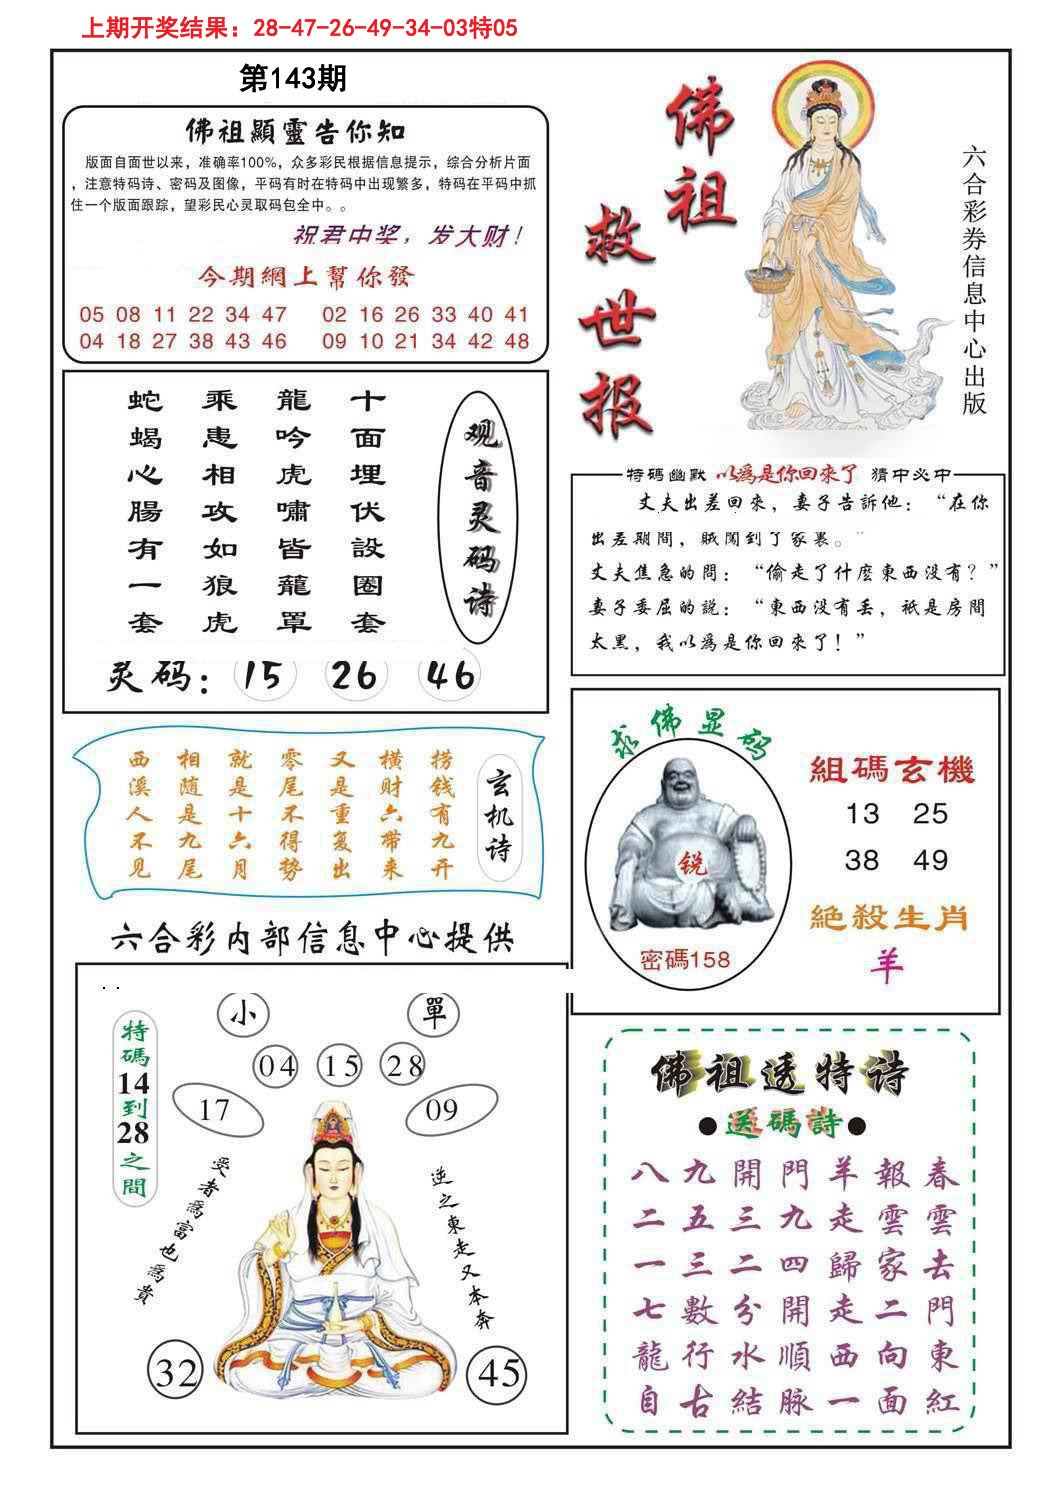 上期开奖结果：28-47-26-49-34-03特05
第143期
佛祖顯靈告你知
版面自面世以来，准确率100%，众多彩民根据信息提示，综合分析片面
，注意特码诗、密码及图像，平码有时在特码中出现繁多，特码在平码中抓
住一个版面跟踪，望彩民心灵取码包全中。。
祝君中奖，发大财！
今期網上幫你發
05 08 11 22 34 47 02 16 26 33 40 41
04 18 27 38 43 46 09 10 21 34 42 48
佛祖
救世报
六合彩券信息中心出版
观音灵码诗
十面埋伏設圈套
龍吟虎嘯皆蘢罩
乘患相攻如狼虎
蛇蝎心腸有一套
灵码：15 26 46
特碼幽默 以為是你回來了 猜中必中
丈夫出差回來，妻子告訴他：“在你
出差期間，賊闖到了家裏。”
丈夫焦急的問：“偷走了什麼東西没有？”
妻子委屈的説：“東西没有丢，衹是房間
太黑，我以為是你回來了！”
玄机诗
捞钱有九开
横财六带来
又是重复出
零尾不得势
就是十六月
相随是九尾
西溪人不见
求佛显码
锐
密碼158
組碼玄機
13 25
38 49
絕殺生肖
羊
六合彩内部信息中心提供
小
單
04 15 28
17
09
特碼14到28之間
受者為富也為貴
逆之東走又本奔
32
45
佛祖透特诗
●送碼詩●
八九開門羊報春
二五三九走雲雲
一三二四歸家去
七數分開走二門
龍行水順西向東
自古結脉一面紅